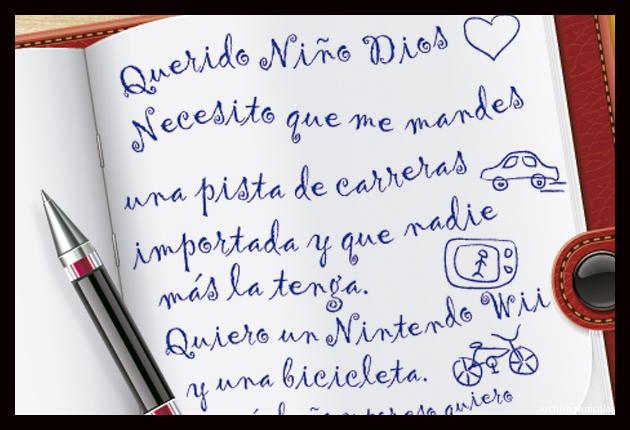 Querido Niño Dios
Necesito que me mandes
una pista de carreras
importada y que nadie
más la tenga.
Quiero un Nintendo Wii
y una bicicleta.
quiero